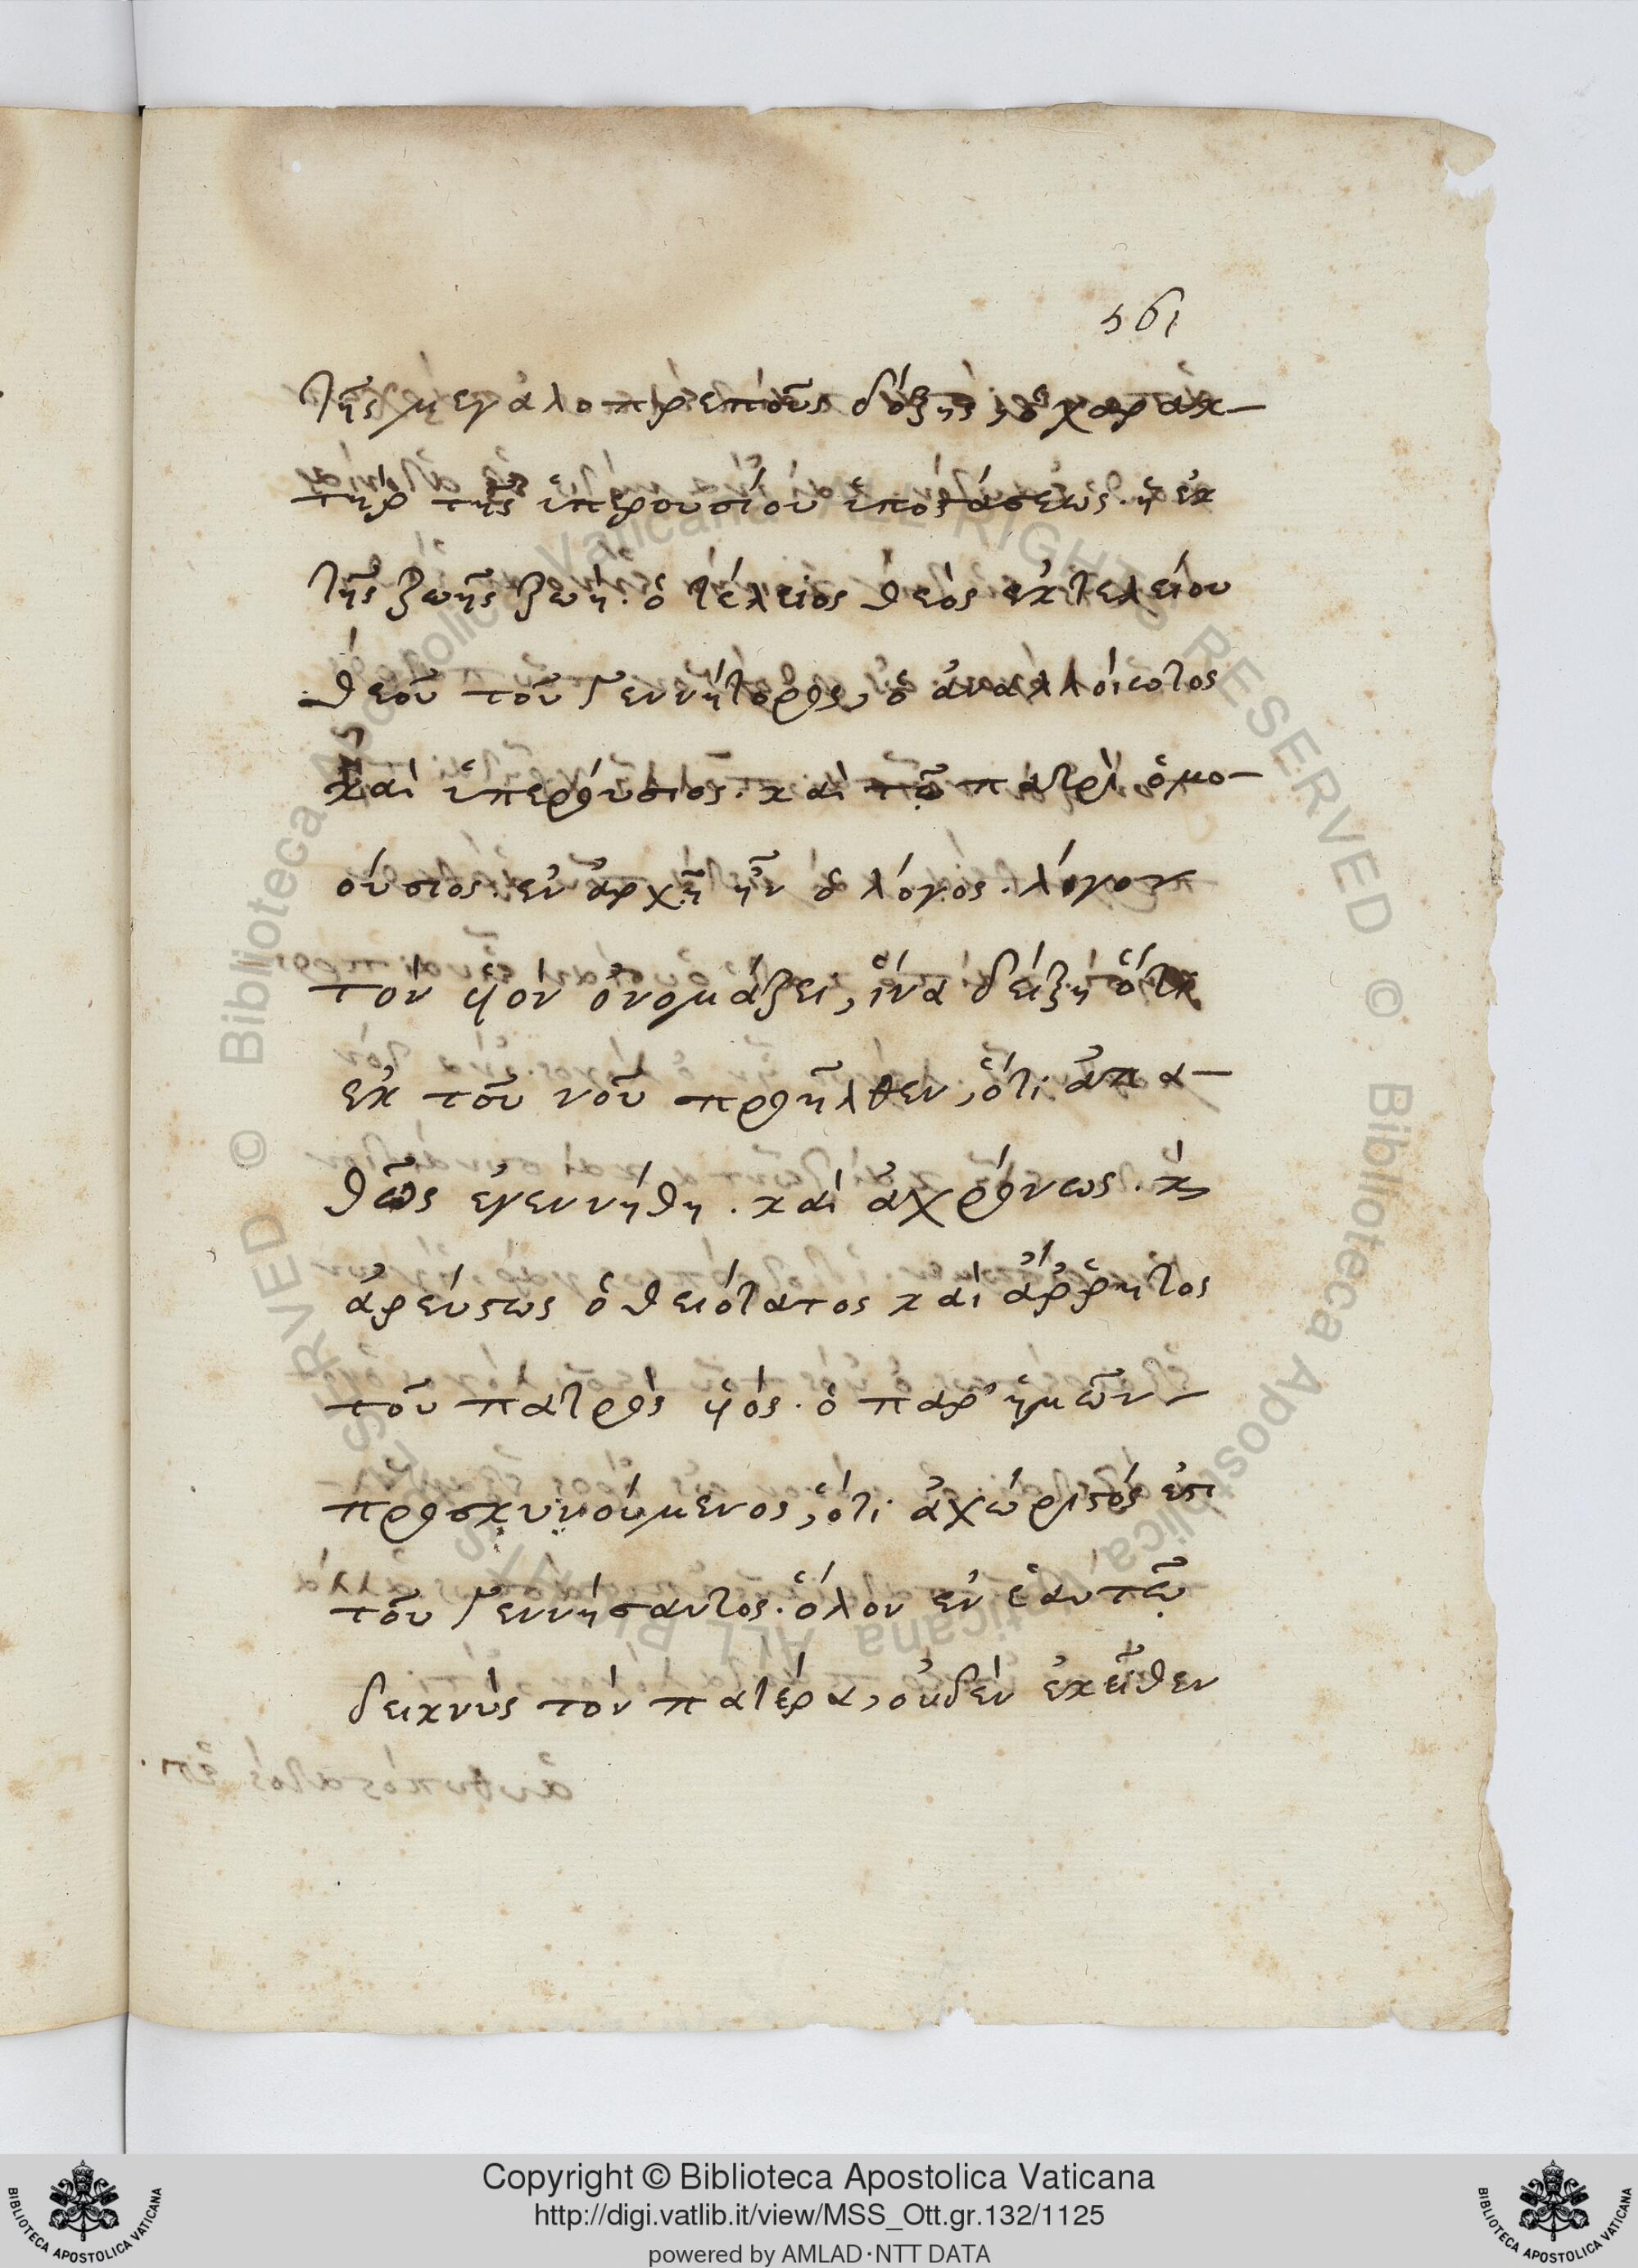 561
τῆς μεγαλοπρεποῦς δόξης, ὁ χαρακ–
τὴρ τῆς ὑπερουσίου ὑποστάσεως. ἡ ἐκ
τῆς ζωῆς ζωή. ὁ τέλειος θεὸς ἐκ τελείου
θεοῦ τοῦ γεννήτορος, ὁ ἀναλλοίωτος
καὶ ὑπερούσιος. καὶ τῷ πατρὶ ὁμο–
ούσιος. ἐν ἀρχῇ ἦν ὁ λόγος. λόγον
τὸν υἱὸν ὀνομάζει, ἵνα δείξη ὅτι
ἐκ τοῦ νοῦ προῆλθεν, ὅτι ἀπα–
θῶς ἐγεννήθη. καὶ ἀχρόνως. κ
ἀρεύστως ὁ θειότατος καὶ ἄῤῥητος
τοῦ πατρὸς υἱός. ὁ παρ' ἡμῶν –
προσκυνούμενος, ὅτι ἀχώριστός ἐστι
τοῦ γεννήσαντος. ὅλον ἐν ἑαυτῷ
δεικνὺς τὸν πατέρα, οὐδὲν ἐκεῖθεν
Biblioteca Apostolica Vaticana ALL RIGHTS RESERVED ©
Copyright © Biblioteca Apostolica Vaticana
http://digi.vatlib.it/view/MSS_Ott.gr.132/1125
powered by AMLAD·NTT DATA
BIBLIOTECA APOSTOLICA VATICANA
BIBLIOTECA APOSTOLICA VATICANA